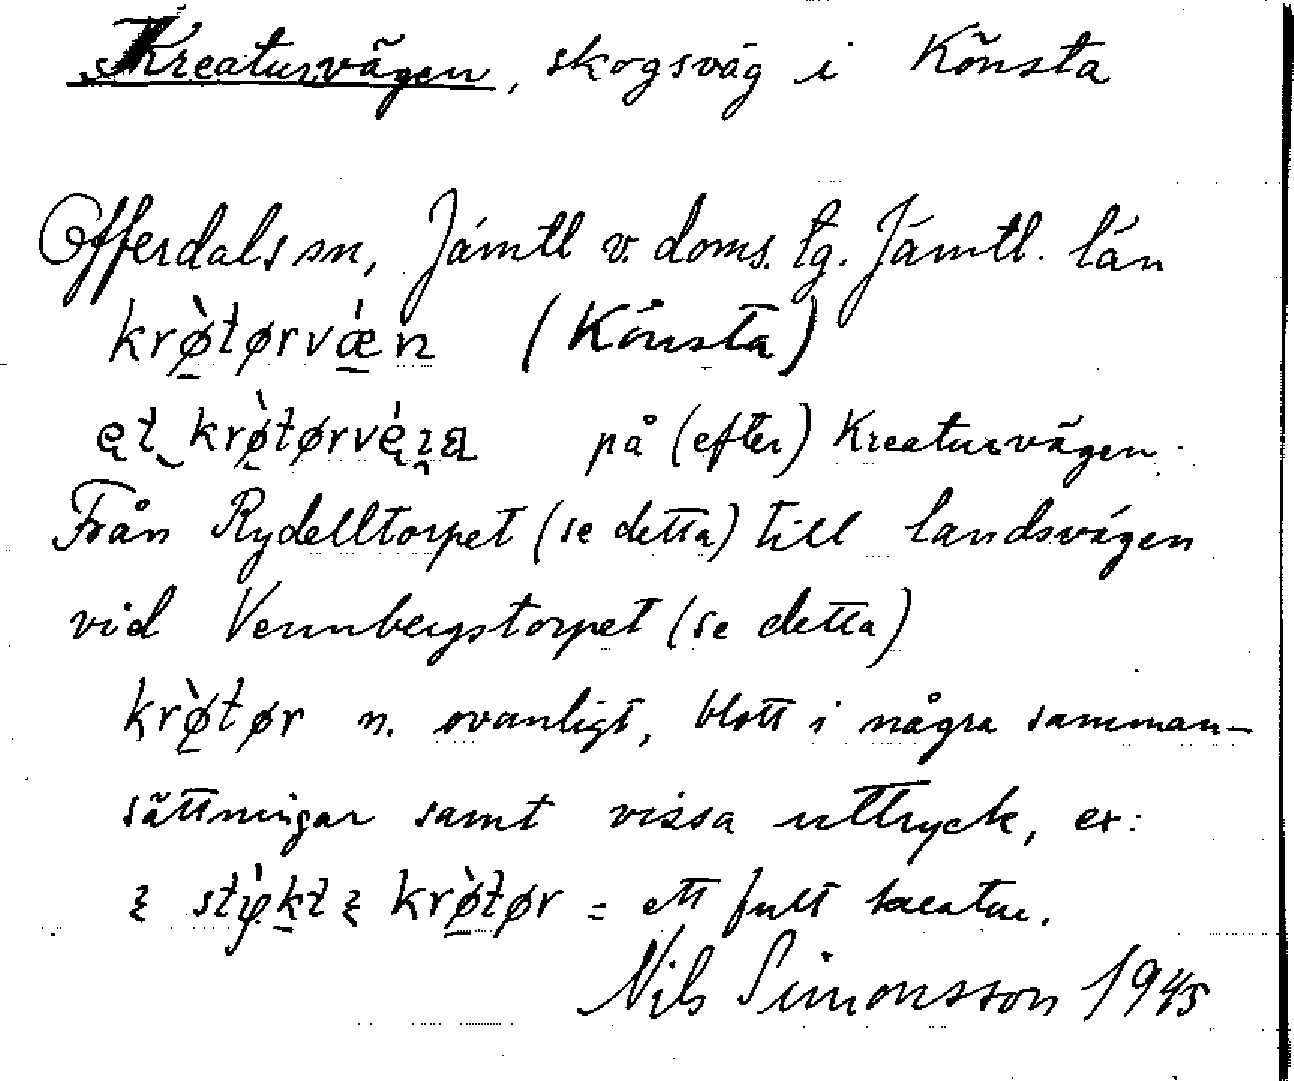 Kreaturvägen, skogsväg i Könsta
Offerdals sn, Jämtl v. doms. tg. Jämtl. län
krø̀tørvǽn (Könsta)
på (efter) Kreaturvägen.
Från Rydelltorpet (se detta) till landsvägen
vid Vennbergstorpet (se detta)
krø̀tør n. ovanligt, blott i några samman-
sättningar samt vissa uttryck, ex:
krø̀tør = ett fult kreatur.
Nils Simonsson 1945